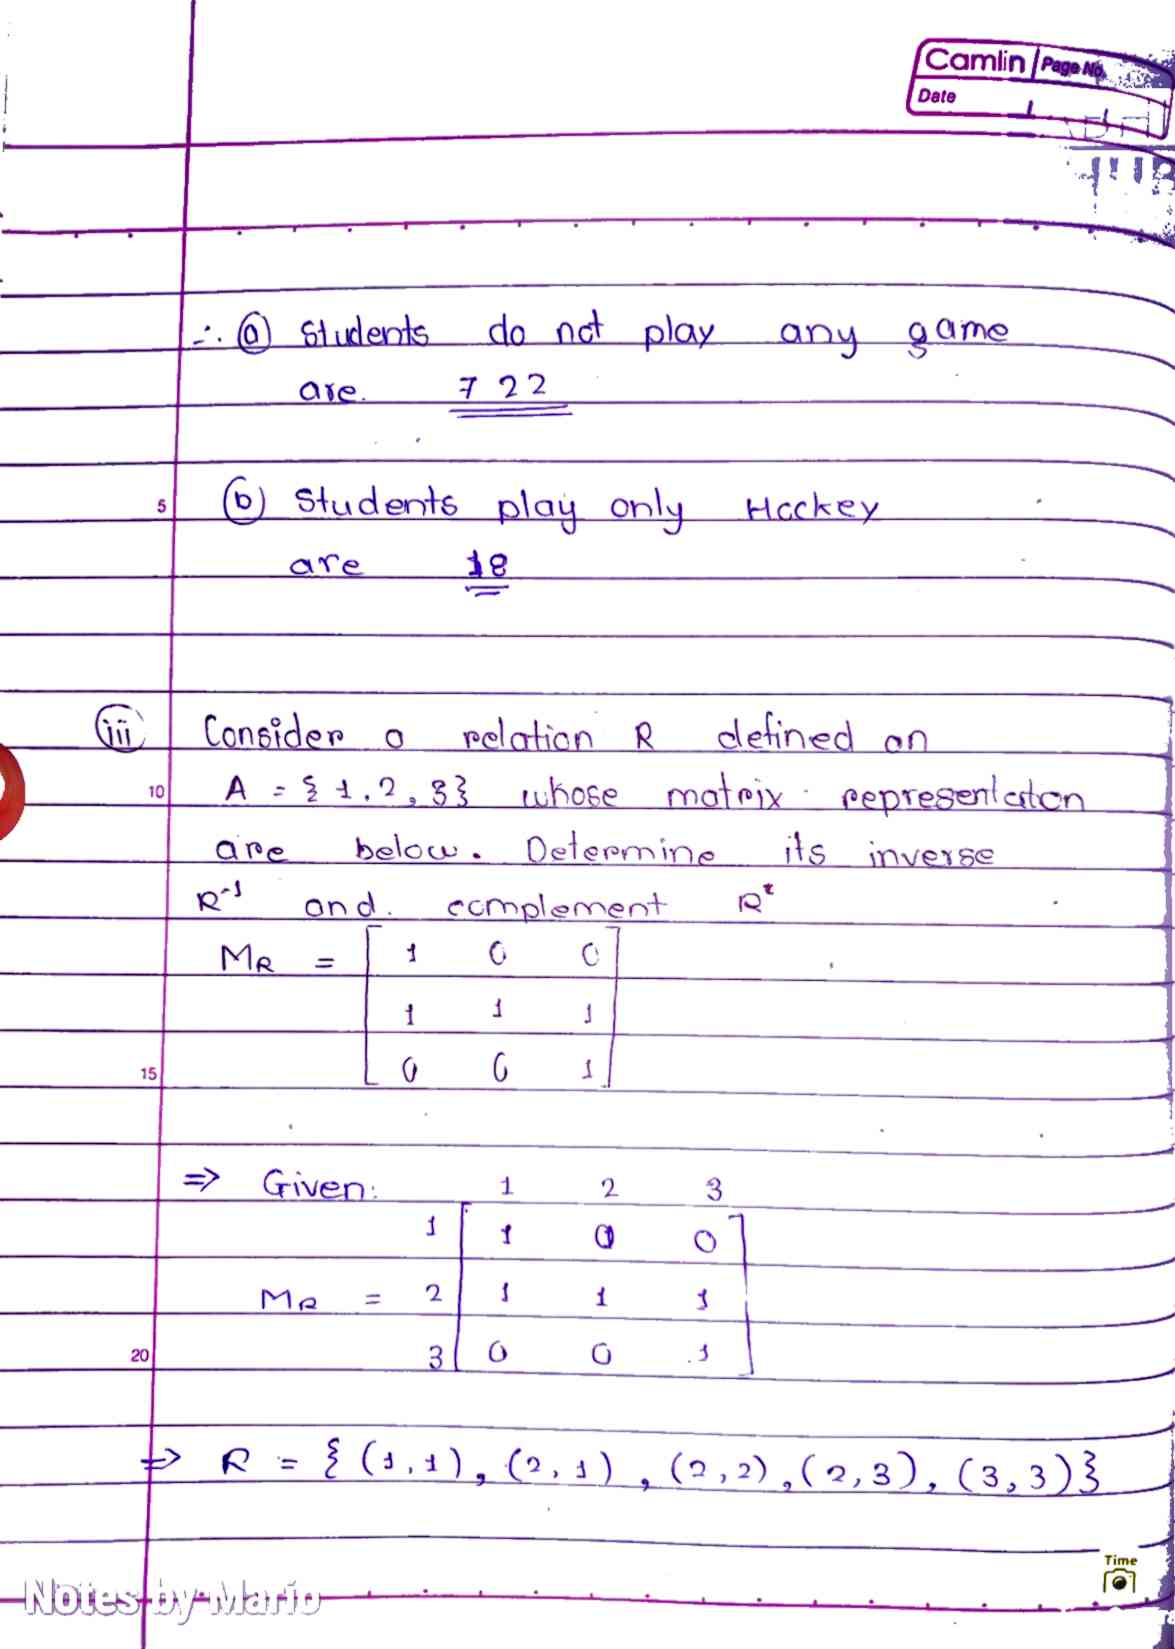 Camlin Page No.
Date / /
∴ ⓐ Students do not play any game
are. 722
5
ⓑ Students play only Hockey
are 18
iii Consider a relation R defined on
10 A = {1, 2, 3} whose matrix representation
are below. Determine its inverse
R⁻¹ and complement
M_R = [ 1 0 0
1 1 1
15 0 0 1 ]
⇒ Given: 1 2 3
1 [ 1 0 0
M_R = 2 1 1 1
20 3 0 0 1 ]
⇒ R = { (1,1), (2,1), (2,2), (2,3), (3,3)}
Time
Notes by Mario